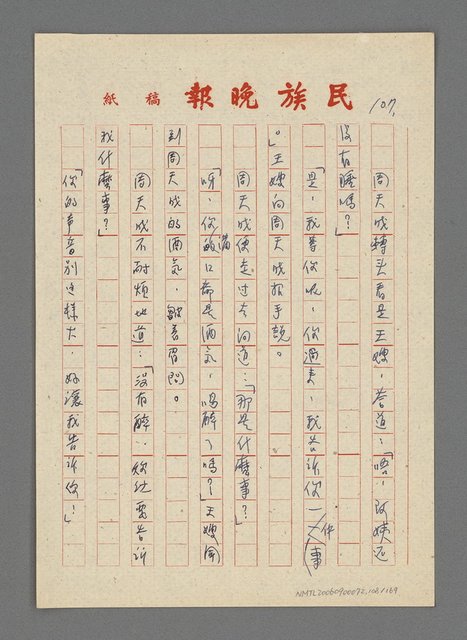 民族晚報 稿紙
107.
周天成轉头看是王嫂，答道：「唔，阿姨还
没有睡嗎？」
「是，我等你呢，你過来，我告訴你一件事
。」王嫂向周天成招手說。
周天成便走过去问道：「那是什麼事？」
「呀，你滿口都是酒气，喝醉了嗎？」王嫂聞
到周天成的酒气，皺着眉問。
周天成不耐煩地道：「沒有醉，你他要告訴
我什麼事？」
「你的声音别这樣大，好讓我告訴你！」
NMTL20060900072,108/169